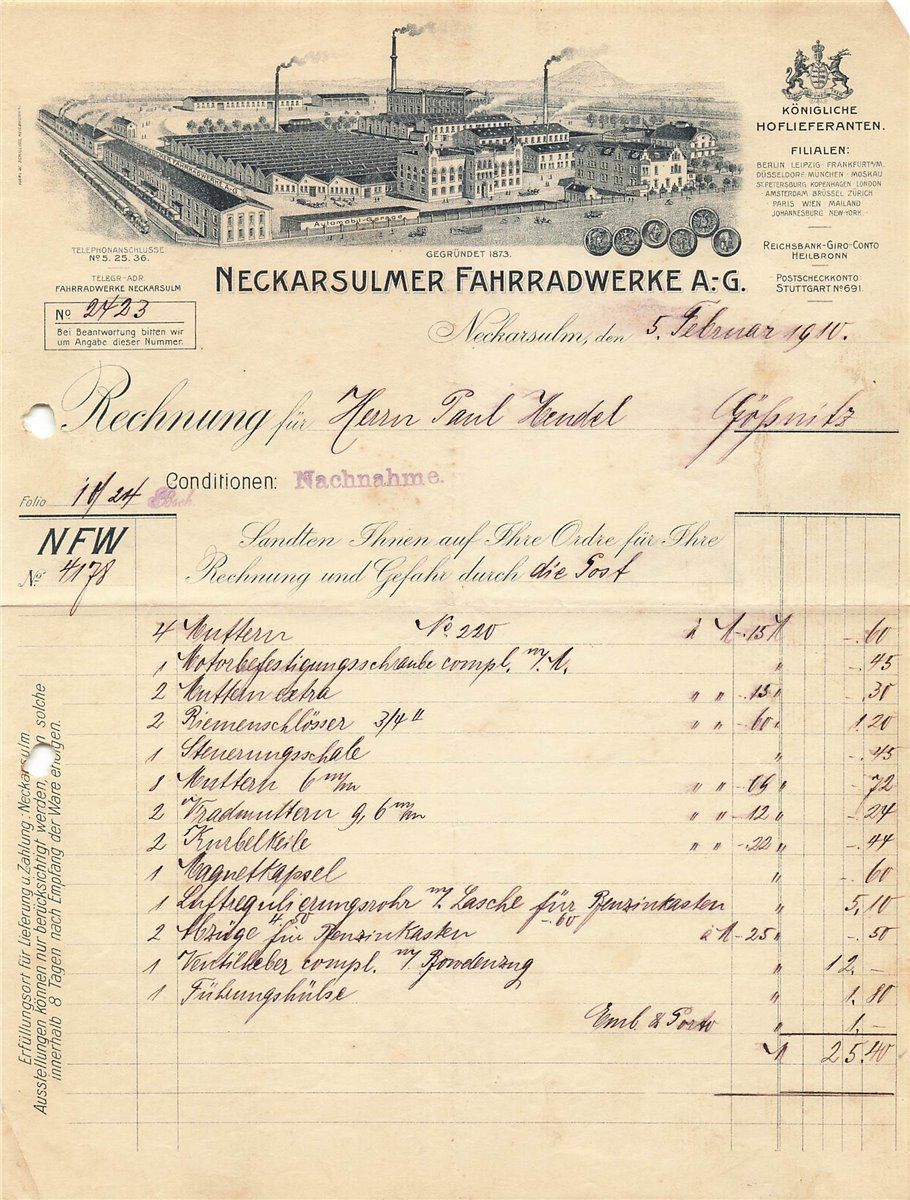 KÖNIGLICHE
HOFLIEFERANTEN.
FILIALEN:
BERLIN LEIPZIG FRANKFURT a/M.
DÜSSELDORF MÜNCHEN MOSKAU
ST. PETERSBURG KOPENHAGEN LONDON
AMSTERDAM BRÜSSEL ZÜRICH
PARIS WIEN MAILAND
JOHANNESBURG NEW-YORK.
REICHSBANK-GIRO-CONTO
HEILBRONN
POSTSCHECKKONTO:
STUTTGART No 691.
FAHRRADWERKE A-G.
Automobil-Garage
TELEPHONANSCHLÜSSE
No 5. 25. 36.
TELEGR-ADR.
FAHRRADWERKE NECKARSULM
GEGRÜNDET 1873.
NECKARSULMER FAHRRADWERKE A.-G.
No 2423
Bei Beantwortung bitten wir
um Angabe dieser Nummer.
Neckarsulm, den 5. Februar 1910.
Rechnung für Herrn Paul Hendel Gößnitz
Folio 10/24 Conditionen: Nachnahme.
NFW
No. 4178
Sandten Ihnen auf Ihre Ordre für Ihre
Rechnung und Gefahr durch die Post
4 Muttern No. 220 à M -.15 M -.60
1 Motorbefestigungsschraube compl. m/M. " -.45
2 Muttern extra " " -.15 " -.30
2 Riemenschlösser 3/4" " " -.60 " 1.20
1 Steuerungsschale " -.45
8 Muttern 6 m/m " " -.09 " -.72
2 Vradmuttern g, 6 m/m " " -.12 " -.24
2 Kurbelkeile " " -.22 " -.44
1 Magnetkapsel " -.60
1 Luftregulierungsrohr m/. Lasche für Benzinkasten " 5.10
4.50 -.60
2 Abzüge für Benzinkasten à M -.25 " -.50
1 Ventilheber compl. m/ Bowdenzug " 12.-
1 Führungshülse " 1.80
Emb. & Porto " 1.-
M 25.40
Erfüllungsort für Lieferung u. Zahlung: Neckarsulm.
Ausstellungen können nur berücksichtigt werden, solche
innerhalb 8 Tagen nach Empfang der Ware erfolgen.